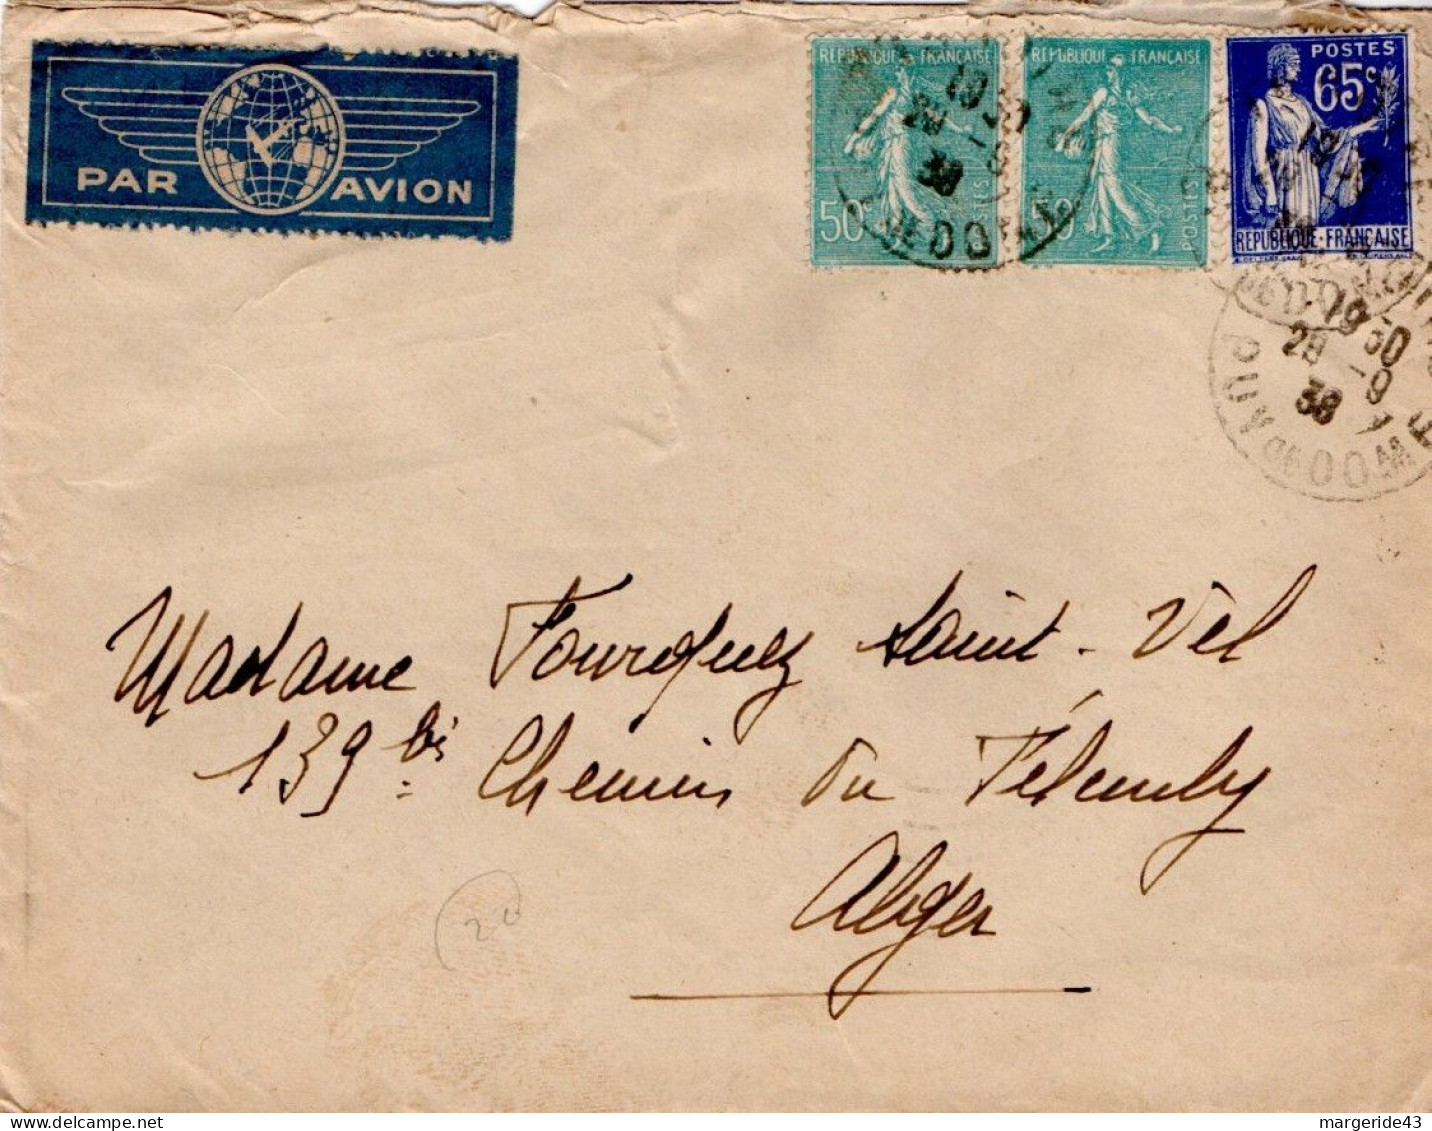 PAR AVION
REPUBLIQUE FRANÇAISE
50c POSTES
REPUBLIQUE FRANÇAISE
50 POSTES
POSTES
65c
REPUBLIQUE-FRANÇAISE
19 30
28 -9
38
PUY DE DOME
Madame Fourquez Saint-Vel
139 bis Chemin du Télemly
Alger
20
margeride43